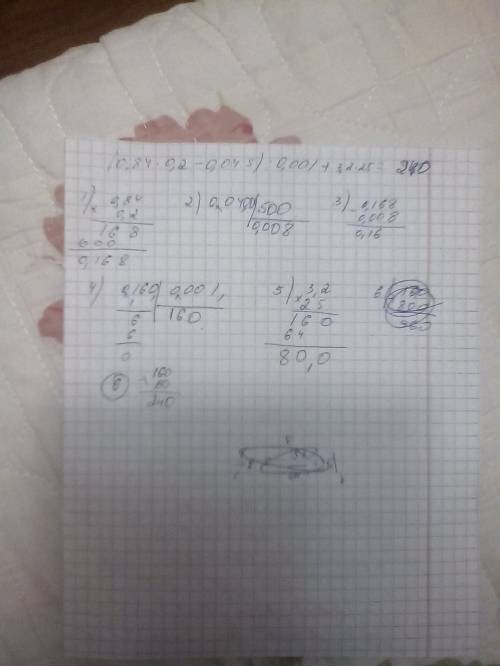 (0,84 · 0,2 - 0,04 : 5) : 0,001 + 3,2 · 25 = 240
1) × 0,84 2) 0,04 500 3) 0,168
0,2 0,008 0,008
16 8 0,16
000
0,168
4) 0,160, 0,001, 5) × 3,2 6
1 160 25
6 160
6 64
0 80,0
6 160
80
240